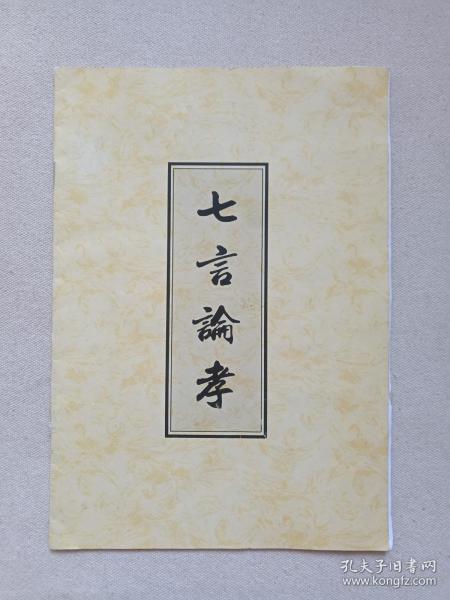 七言論孝
孔夫子旧书网
www.kongfz.com